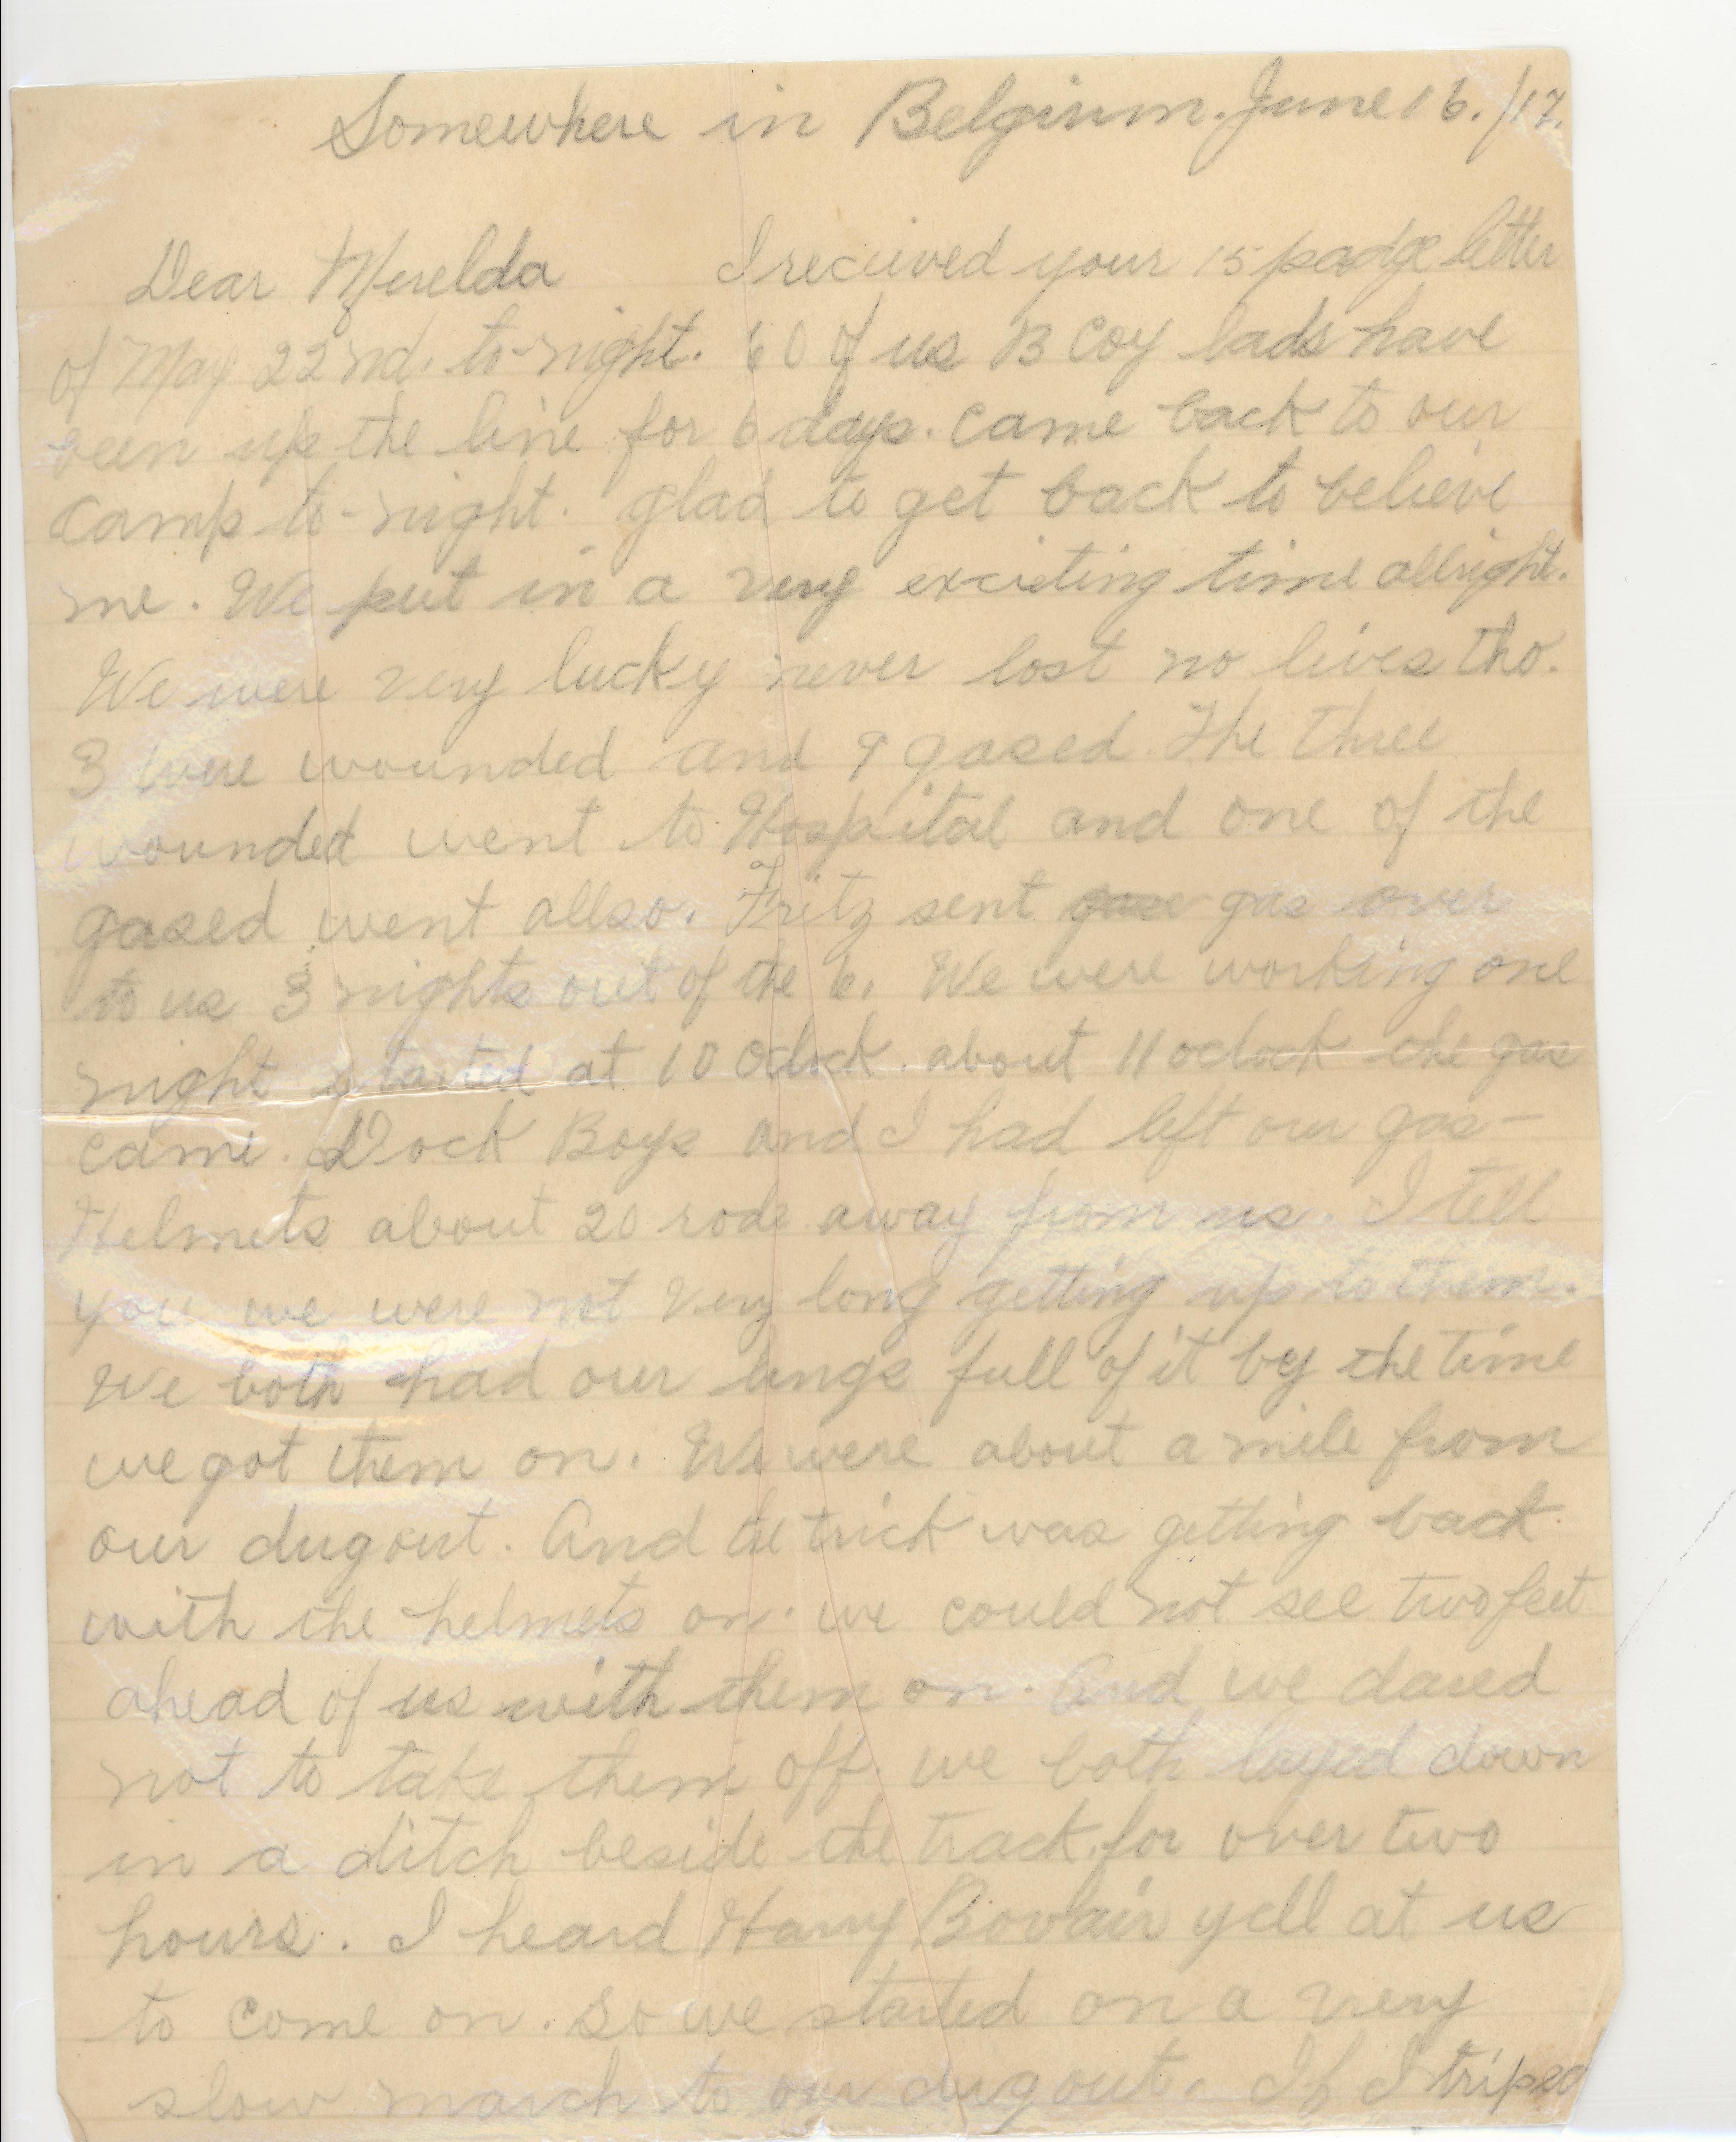 Somewhere in Belgium. June 16./17.
Dear Merelda I recieved your 15 padge letter
of May 22nd. to-night. 60 of us B Coy lads have
been up the line for 6 days. came back to our
camp to-night. glad to get back to believe
me. We put in a very exciting time allright.
We were very lucky never lost no lives tho.
3 were wounded and 9 gased. The three
wounded went to Hospital and one of the
gased went allso. Fritz sent gas over
to us 3 nights out of the 6. We were working one
night started at 10 oclock. about 11 oclock the gas
came. Dock Boys and I had left our gas-
Helmets about 20 rods away from us. I tell
you we were not very long getting up to them.
We both had our lungs full of it by the time
we got them on. We were about a mile from
our dugout. And the trick was getting back
with the helmets on. we could not see two feet
ahead of us with them on. And we dared
not to take them off. we both layed down
in a ditch beside the track for over two
hours. I heard Harry Bovair yell at us
to come on. so we started on a very
slow march to our dugout. If I triped